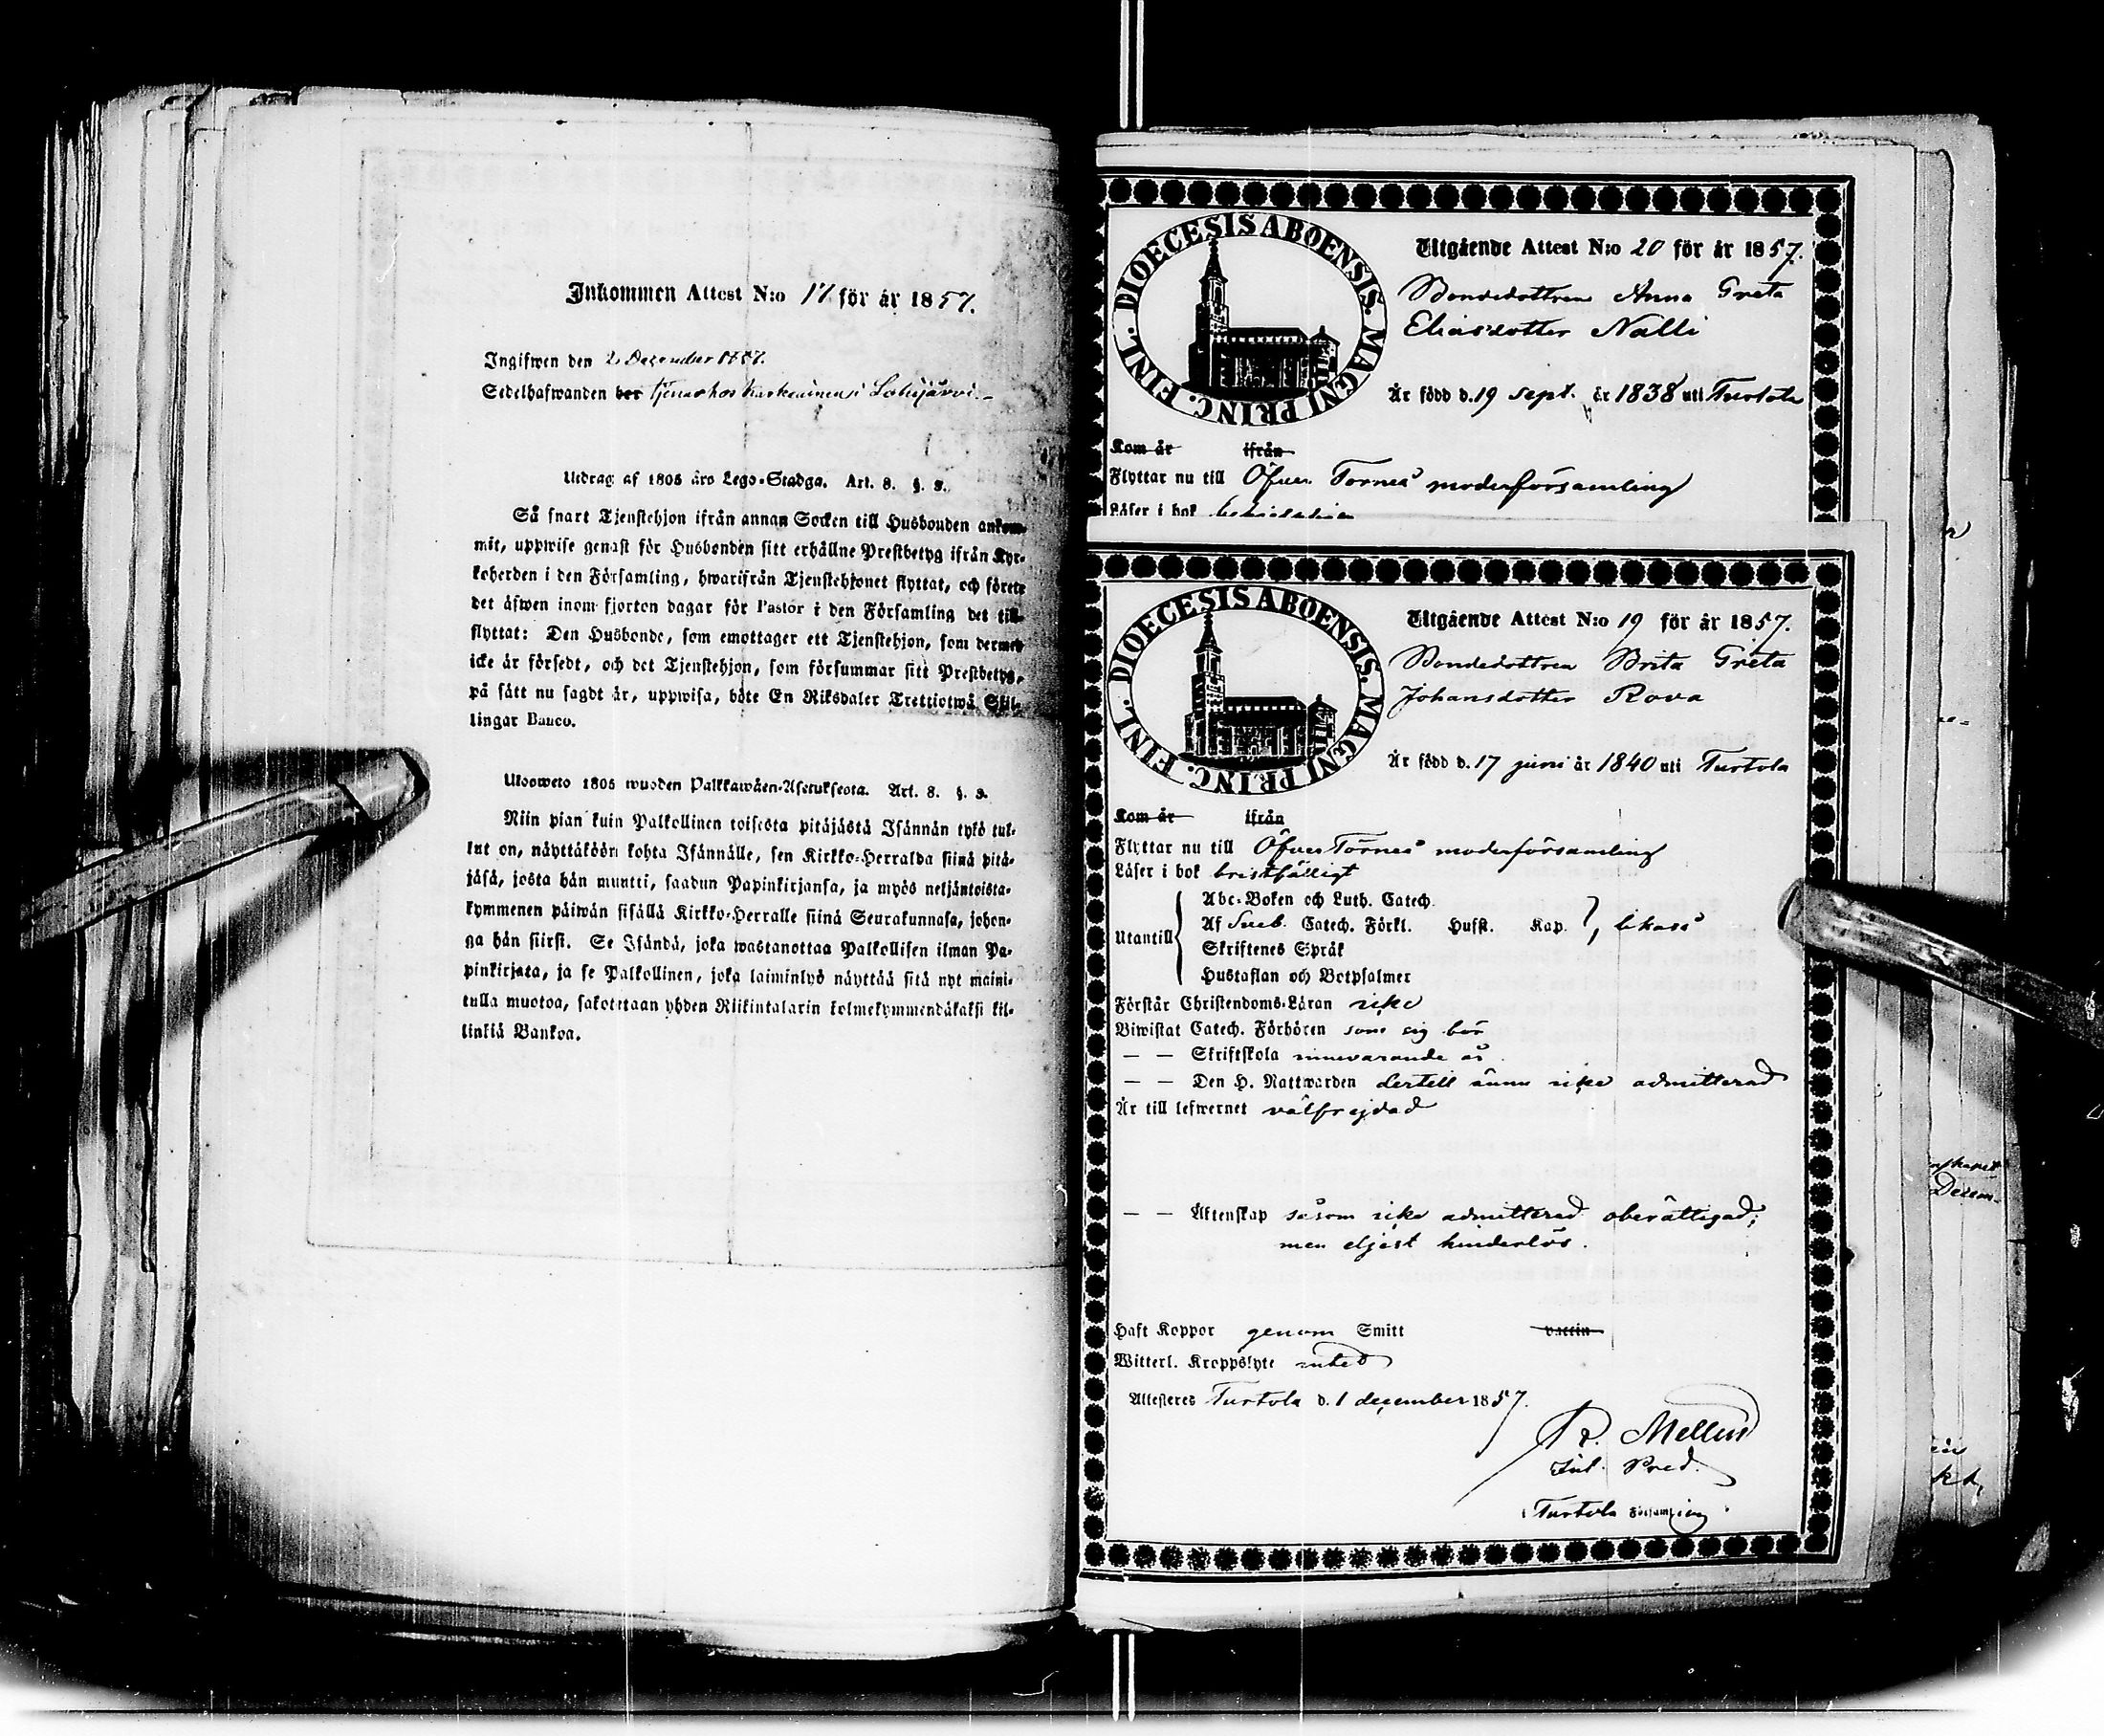 Inkommen Attest N:o 17 för år 1857.
Ingifwen den 2 December 1857.
Sedelhafwanden bor tjenar hos i Lohijärvi.
Utdrag af 1805 års Lego-Stadga. Art. 8. §. 3.
Så snart Tjenstehjon ifrån annan Socken till Husbonden ankom-
mit, uppwise genast för Husbonden sitt erhållne Prestbetyg ifrån Kyr-
koherden i den Församling, hwarifrån Tjenstehjonet flyttat, och förete
det äfwen inom fjorton dagar för Pastor i den Församling det till-
flyttat: Den Husbonde, som emottager ett Tjenstehjon, som dermed
icke är försedt, och det Tjenstehjon, som försummar sitt Prestbetyg,
på sätt nu sagdt är, uppwisa, böte En Riksdaler Trettiotwå Skil-
lingar Banco.
Ulosweto 1805 wuoden Palkkawäen-Asetuksesta. Art. 8. §. 3.
Niin pian kuin Palkollinen toisesta pitäjästä Isännän tykö tul-
lut on, näyttäköön kohta Isännälle, sen Kirkko-Herralda siinä pitä-
jäsä, josta hän muutti, saadun Papinkirjansa, ja myös neljäntoista-
kymmenen päiwän sisällä Kirkko-Herralle siinä Seurakunnasa, johon-
ga hän siirsi. Se Isändä, joka wastanottaa Palkollisen ilman Pa-
pinkirjata, ja se Palkollinen, joka laiminlyö näyttää sitä nyt maini-
tulla muotoa, sakotetaan yhden Riikintalarin kolmekymmendäkaksi kil-
linkiä Bankoa.
FINL. DIOECESIS ABOENSIS. MAGNI PRINC.
Utgående Attest N:o 20 för år 1857.
Bondedottren Anna Greta
Eliasdotter Nalli
Är född d. 19 sept. år 1838 uti Turtola
Kom år ifrån
Flyttar nu till Öfver Torneå moderförsamling
Läser i bok
FINL. DIOECESIS ABOENSIS. MAGNI PRINC.
Utgående Attest N:o 19 för år 1857.
Bondedottren Brita Greta
Johansdotter Rova
Är född d. 17 juni år 1840 uti Turtola
Kom år ifrån
Flyttar nu till Öfver Torneå moderförsamling
Läser i bok bristfälligt
Utantill
Abc-Boken och Luth. Catech.
Af Sveb. Catech. Förkl. Husst. Kap. likaså
Skriftenes Språk
Hustaflan och Botpsalmer
Förstår Christendoms-Läran icke
Biwistat Catech. Förhören som sig bör
— — Skriftskola innevarande år
— — Den H. Nattwarden dertill ännu icke admitterad
Är till lefwernet välfrejdad
— — Äktenskap såsom icke admitterad oberättigad;
men eljest hinderlös.
Haft Koppor genom Smitt vaccin
Witterl. Kroppslyte intet
Attesteres Turtola d. 1 december 1857.
R. Mellin
Pred.
Turtola Församling